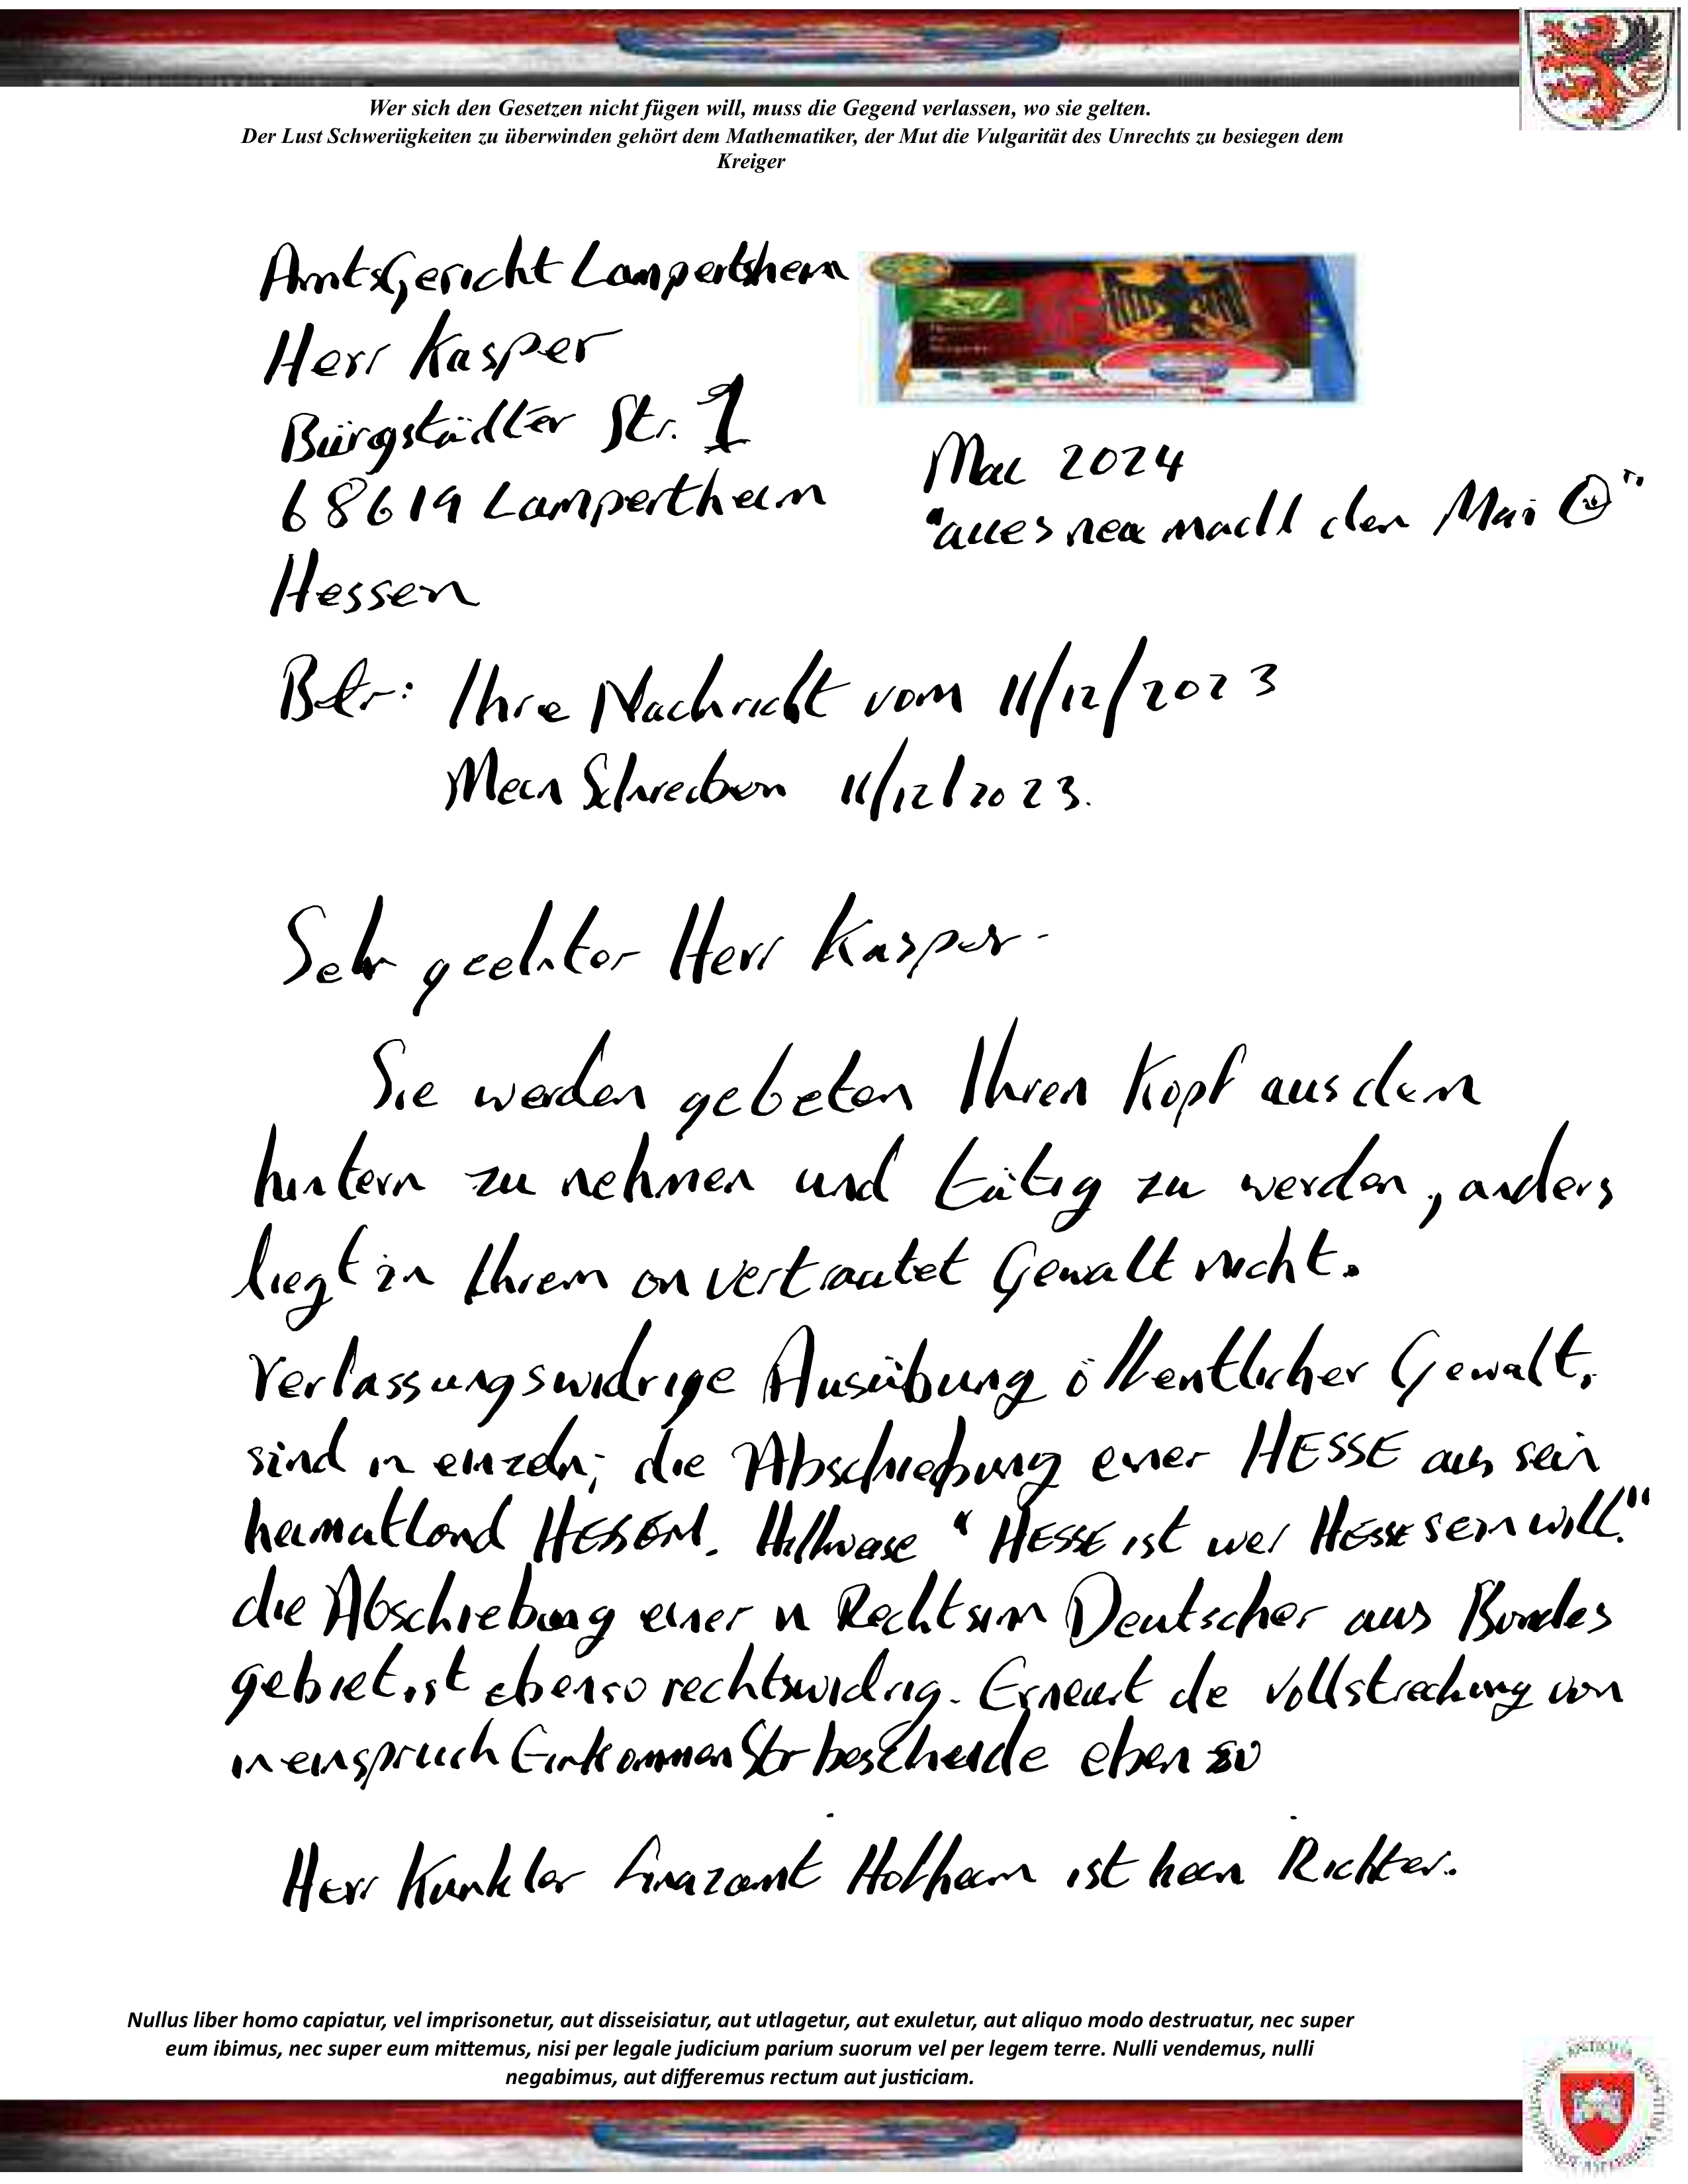 Wer sich den Gesetzen nicht fügen will, muss die Gegend verlassen, wo sie gelten.
Der Lust Schweriigkeiten zu überwinden gehört dem Mathematiker, der Mut die Vulgarität des Unrechts zu besiegen dem
Kreiger
AmtsGericht Lampertshem
Herr Kasper
Bürgstädter Str. 1
68619 Lampertheim
Hessen
Mai 2024
"alles neu macht der Mai ☺"
Betr: Ihre Nachricht vom 11/12/2023
Mein Schreiben 11/12/2023.
Sehr geehrter Herr Kasper-
Sie werden gebeten Ihren Kopf aus dem
hintern zu nehmen und tätig zu werden, anders
liegt in Ihrem anvertrautet Gewalt nicht.
Verfassungswidrige Ausübung öffentlicher Gewalt,
sind in einzeln; die Abschiebung einer HESSE aus sein
heimatland HESSEN. Hilfweise "HESSE ist wer HESSE sein will."
die Abschiebung einer in Rechtsinn Deutscher aus Bundes
gebiet, ist ebenso rechtswidrig. Erneurt die Vollstreckung von
in einspruch Einkommen Str bescheide eben so
Herr Kunkler Finazamt Hofheim ist kein Richter.
Nullus liber homo capiatur, vel imprisonetur, aut disseisiatur, aut utlagetur, aut exuletur, aut aliquo modo destruatur, nec super
eum ibimus, nec super eum mittemus, nisi per legale judicium parium suorum vel per legem terre. Nulli vendemus, nulli
negabimus, aut differemus rectum aut justiciam.